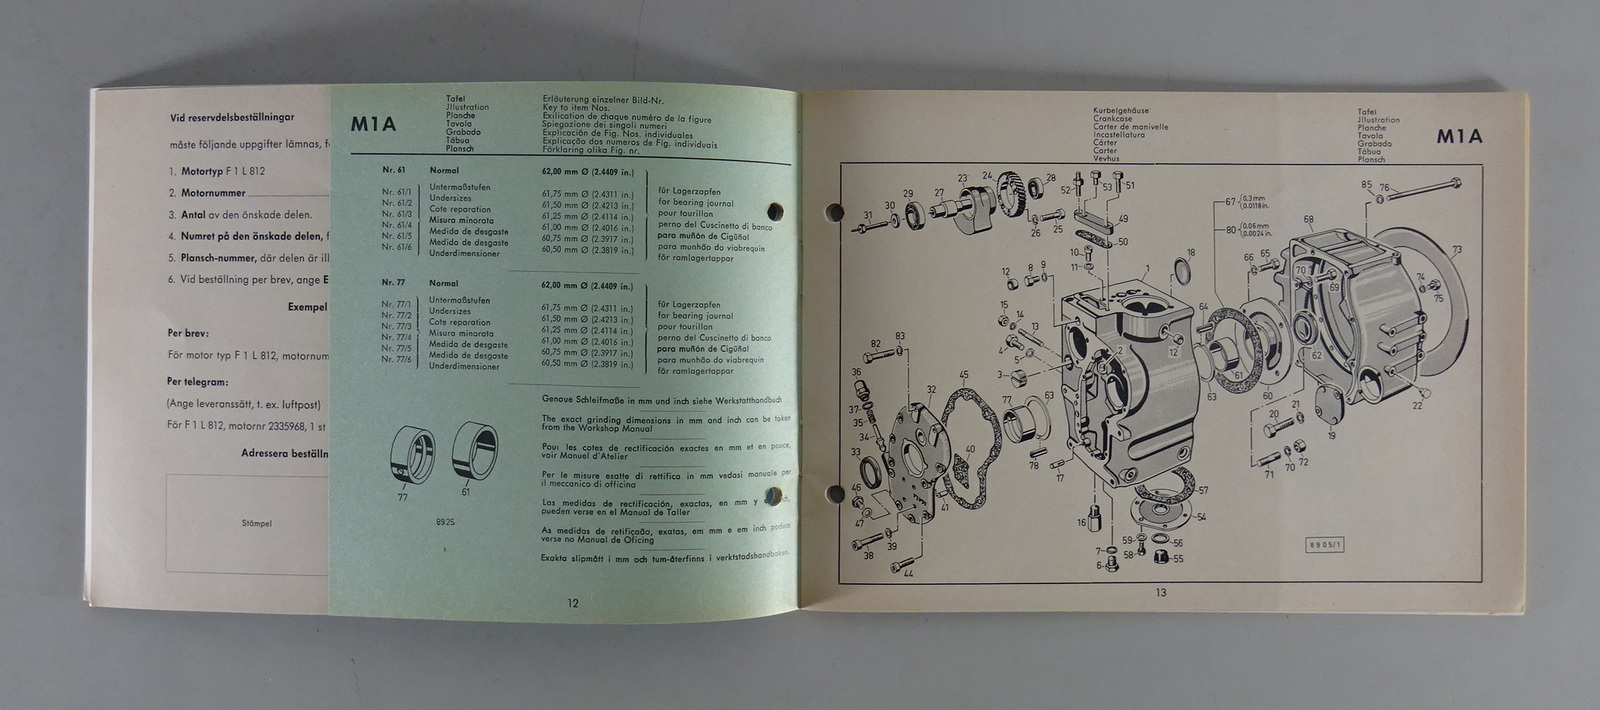 Vid reservdelsbeställningar
måste följande uppgifter lämnas, f
1. Motortyp F 1 L 812
2. Motornummer
3. Antal av den önskade delen.
4. Numret på den önskade delen, f
5. Plansch-nummer, där delen är ill
6. Vid beställning per brev, ange E
Exempel
Per brev:
För motor typ F 1 L 812, motornum
Per telegram:
(Ange leveranssätt, t. ex. luftpost)
För F 1 L 812, motornr 2335968, 1 st
Adressera beställn
Stämpel
M1A
Tafel
Jllustration
Planche
Tavola
Grabado
Tábua
Plansch
Erläuterung einzelner Bild-Nr.
Key to item Nos.
Exilication de chaque numéro de la figure
Spiegazione dei singoli numeri
Explicación de Fig. Nos. individuales
Explicação dos numeros de Fig. individuais
Förklaring olika Fig. nr.
Nr. 61 Normal 62,00 mm Ø (2.4409 in.)
Nr. 61/1
Nr. 61/2
Nr. 61/3
Nr. 61/4
Nr. 61/5
Nr. 61/6
Untermaßstufen
Undersizes
Cote reparation
Misura minorata
Medida de desgaste
Medida de desgaste
Underdimensioner
61,75 mm Ø (2.4311 in.)
61,50 mm Ø (2.4213 in.)
61,25 mm Ø (2.4114 in.)
61,00 mm Ø (2.4016 in.)
60,75 mm Ø (2.3917 in.)
60,50 mm Ø (2.3819 in.)
für Lagerzapfen
for bearing journal
pour tourillon
perno del Cuscinetto di banco
para muñón de Cigüñal
para munhão do viabrequin
för ramlagertappar
Nr. 77 Normal 62,00 mm Ø (2.4409 in.)
Nr. 77/1
Nr. 77/2
Nr. 77/3
Nr. 77/4
Nr. 77/5
Nr. 77/6
Untermaßstufen
Undersizes
Cote reparation
Misura minorata
Medida de desgaste
Medida de desgaste
Underdimensioner
61,75 mm Ø (2.4311 in.)
61,50 mm Ø (2.4213 in.)
61,25 mm Ø (2.4114 in.)
61,00 mm Ø (2.4016 in.)
60,75 mm Ø (2.3917 in.)
60,50 mm Ø (2.3819 in.)
für Lagerzapfen
for bearing journal
pour tourillon
perno del Cuscinetto di banco
para muñón de Cigüñal
para munhão do viabrequin
för ramlagertappar
Genaue Schleifmaße in mm und inch siehe Werkstatthandbuch
The exact grinding dimensions in mm and inch can be taken
from the Workshop Manual
Pour les cotes de rectificación exactes en mm et en pouce,
voir Manuel d'Atelier
Per le misure esatte di rettifico in mm vedasi manuale per
il meccanico di officina
Las medidas de rectificación, exactas, en mm y
pueden verse en el Manual de Taller
As medidas de retificação, exatas, em mm e em inch podem
verse no Manual de Oficing
Exakta slipmått i mm och tum-återfinns i verktstadshandboken.
77
61
8925
12
Kurbelgehäuse
Crankcase
Carter de manivelle
Incastellatura
Cárter
Carter
Vevhus
Tafel
Jllustration
Planche
Tavola
Grabado
Tábua
Plansch
M1A
31
30
29
27
23
24
28
26
25
52
53
51
49
50
10
11
12
8
9
1
18
67 (0,3 mm
0.0118 in.
80 (0,06 mm
0.0024 in.
66
65
68
85
76
73
70
69
74
75
15
14
13
4
5
3
2
12
64
61
63
60
62
22
19
20
21
71
70
72
82
83
36
37
35
34
33
32
45
40
77
63
78
17
46
47
41
38
39
44
16
7
6
57
54
59
58
56
55
8905/1
13